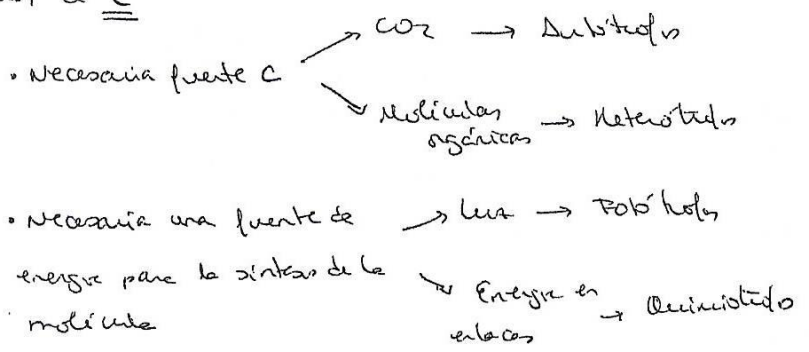 a C
• Necesaria fuente C → CO2 → Autótrofos
→ Moléculas orgánicas → Heterótrofos
• Necesaria una fuente de → luz → Fotótrofos
energía para la síntesis de la
molécula → Energía en enlaces → Quimiótrofos